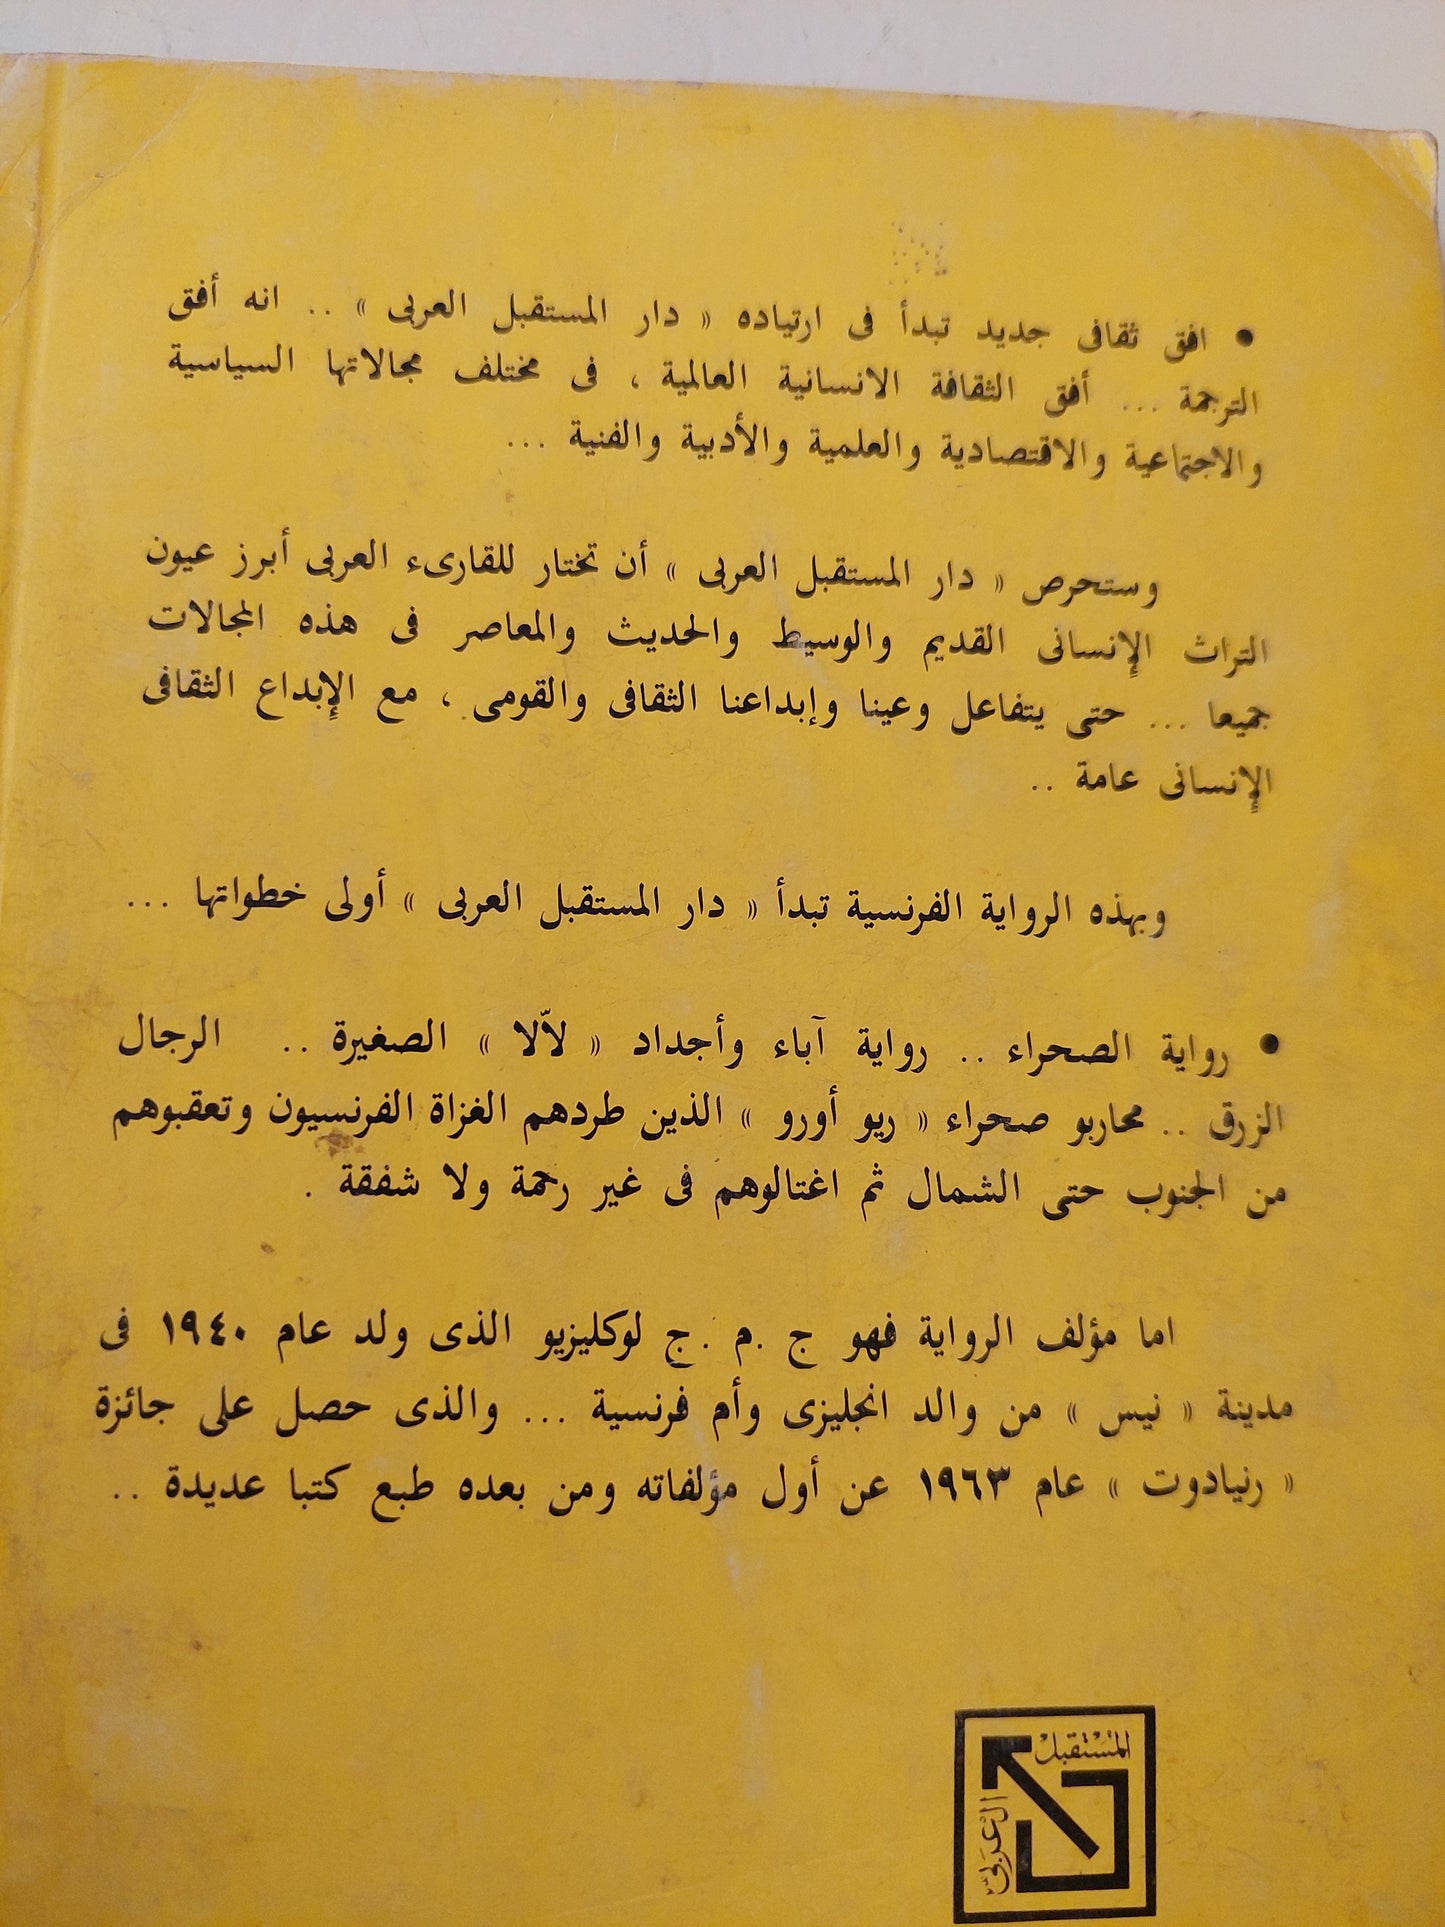 ● افق ثقافى جديد تبدأ فى ارتياده « دار المستقبل العربى » .. انه أفق
الترجمة ... أفق الثقافة الانسانية العالمية ، فى مختلف مجالاتها السياسية
والاجتماعية والاقتصادية والعلمية والأدبية والفنية ...
وستحرص « دار المستقبل العربى » أن تختار للقارىء العربى أبرز عيون
التراث الإنسانى القديم والوسيط والحديث والمعاصر فى هذه المجالات
جميعا ... حتى يتفاعل وعينا وإبداعنا الثقافى والقومى ، مع الإبداع الثقافى
الإنسانى عامة ..
وبهذه الرواية الفرنسية تبدأ « دار المستقبل العربى » أولى خطواتها ...
● رواية الصحراء .. رواية آباء وأجداد « لاّلا » الصغيرة .. الرجال
الزرق .. محاربو صحراء « ريو أورو » الذين طردهم الغزاة الفرنسيون وتعقبوهم
من الجنوب حتى الشمال ثم اغتالوهم فى غير رحمة ولا شفقة .
اما مؤلف الرواية فهو ج .م .ج لوكليزيو الذى ولد عام ١٩٤٠ فى
مدينة « نيس » من والد انجليزى وأم فرنسية ... والذى حصل على جائزة
« رنيادوت » عام ١٩٦٣ عن أول مؤلفاته ومن بعده طبع كتبا عديدة ..
المستقبل
العربى